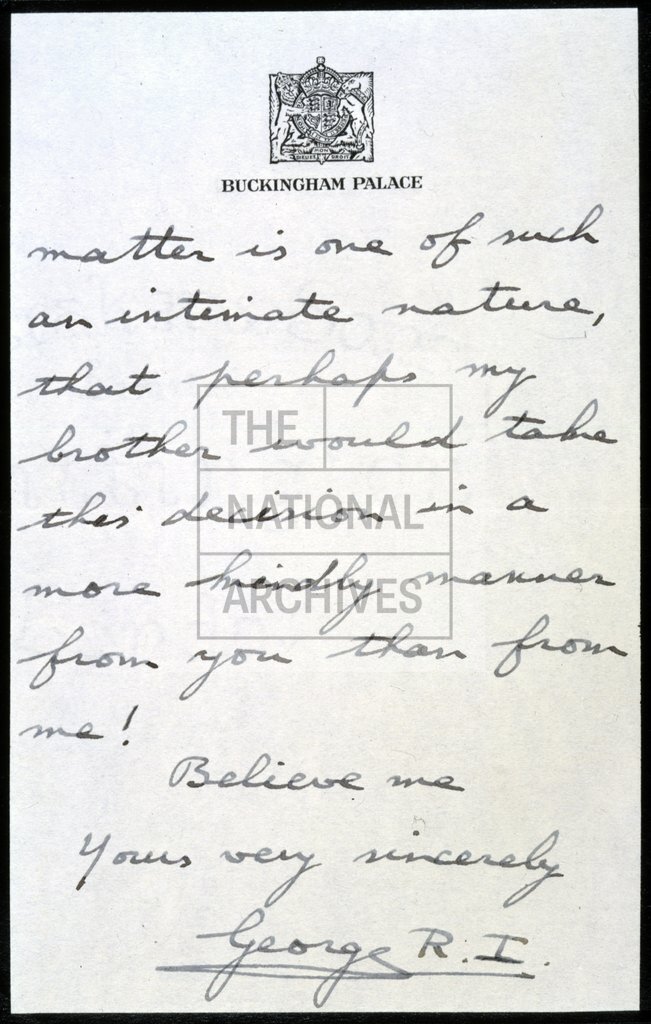 DIEU ET MON DROIT
BUCKINGHAM PALACE
matter is one of such
an intimate nature,
that perhaps my
brother would take
this decision in a
more kindly manner
from you than from
me!
Believe me
Yours very sincerely
George R. I.
THE
NATIONAL
ARCHIVES